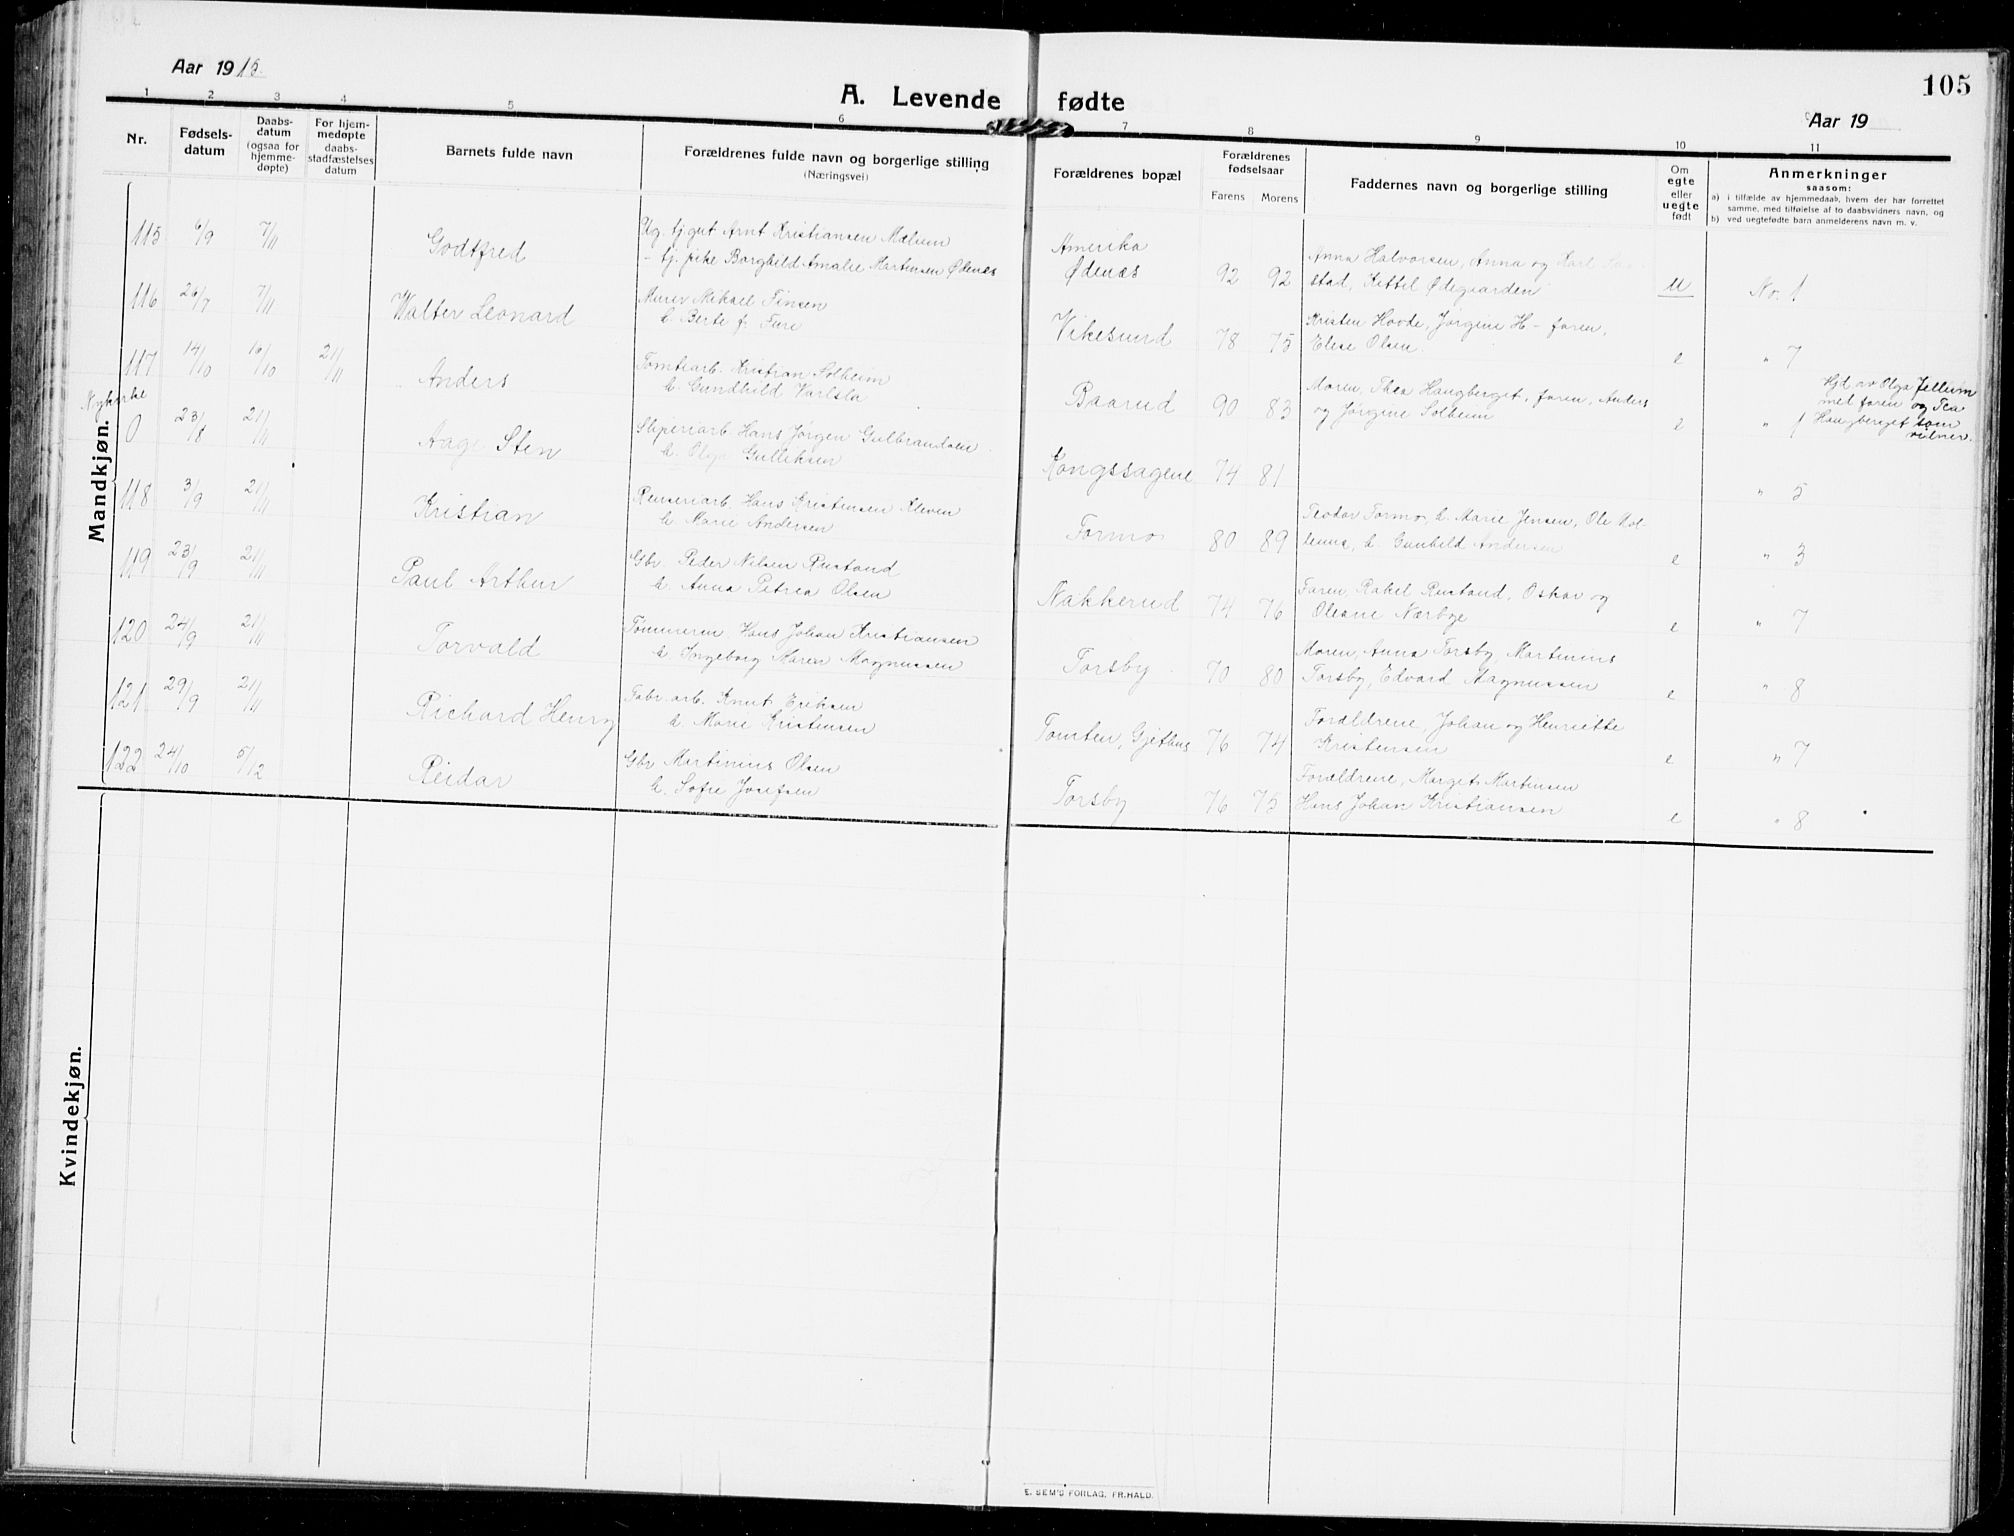 Aar 1915.
105
A. Levende fødte
Aar 19
1 2 3 4 5 6 7 8 9 10 11
Nr.
Fødsels-
datum
Daabs-
datum
(ogsaa for
hjemme-
døpte)
For hjem-
medøpte
daabs-
stadfæstelses
datum
Barnets fulde navn
Forældrenes fulde navn og borgerlige stilling
(Næringsvei)
Forældrenes bopæl
Forældrenes
fødselsaar
Farens Morens
Faddernes navn og borgerlige stilling
Om
egte
eller
uegte
født
Anmerkninger
saasom:
a) i tilfælde av hjemmedaab, hvem der har forrettet
samme, med tilføielse af to daabsvidners navn, og
b) ved uegtefødte barn anmelderens navn m. v.
Mandkjøn.
115 6/9 7/11 Godtfred
Ug. tj.gut Arnt Kristiansen Mælum
- tj. pike Borghild Amalie Martinsen Ødenes
Amerika
Ødenæs 92 92
Anna Halvorsen, Anna og Karl
stad, Kittel Ødegaarden u No. 1
116 26/7 7/11 Walter Leonard
Murer Mikael Finsen
h. Berte f. Fure
Vikesund 78 75
Kristen Hovde, Jørgine H- faren,
Elise Olsen. e " 7
117 14/10 16/10 21/11 Anders
Tomtearb. Kristian Solheim
h. Gundhild Varlsla
Baarud 90 83
Moren, Thea Haugberget, faren, Anders
og Jørgine Solheim e " 1
Hjd. av Olga Jelleim
med faren og Tea
Haugberget som
vitner.
Nykirke
0 23/8 21/11 Aage Sten
Sliperiarb. Hans Jørgen Gulbrandsen
h. Olga Gulliksen
Kongssagene 74 81 " 5
118 3/9 21/11 Kristian
Renseriarb. Hans Kristensen Kleven
h. Marie Andersen
Formo 80 89
Teodor Formo, h. Marie Jensen, Ole Mol
lerud, h. Gunhild Andersen e " 3
119 23/9 21/11 Paul Arthur
Gbr. Peder Nilsen Rustand
h. Anna Petrea Olsen
Nakkerud 74 76
Faren, Rakel Rustand, Oskar og
Olesne Nærbye e " 7
120 24/9 21/11 Torvald
Tømmerm. Hans Johan Kristiansen
h. Ingeborg Maren Magnussen
Torsby 70 80
Moren, Anna Torsby, Martinius
Torsby, Edvard Magnussen e " 8
121 29/9 21/11 Richard Henry
Fabr. arb. Knut Eriksen
h. Marie Kristensen
Tomten, Gjethus 76 74
Forældrene, Johan og Henriette
Kristensen e " 7
122 24/10 5/12 Reidar
Gbr Martinius Olsen
h. Sofie Josefsen
Torsby 76 75
Forældrene, Marget Martinsen
Hans Johan Kristiansen e " 8
Kvindekjøn.
E. SEM'S FORLAG, FR.HALD.